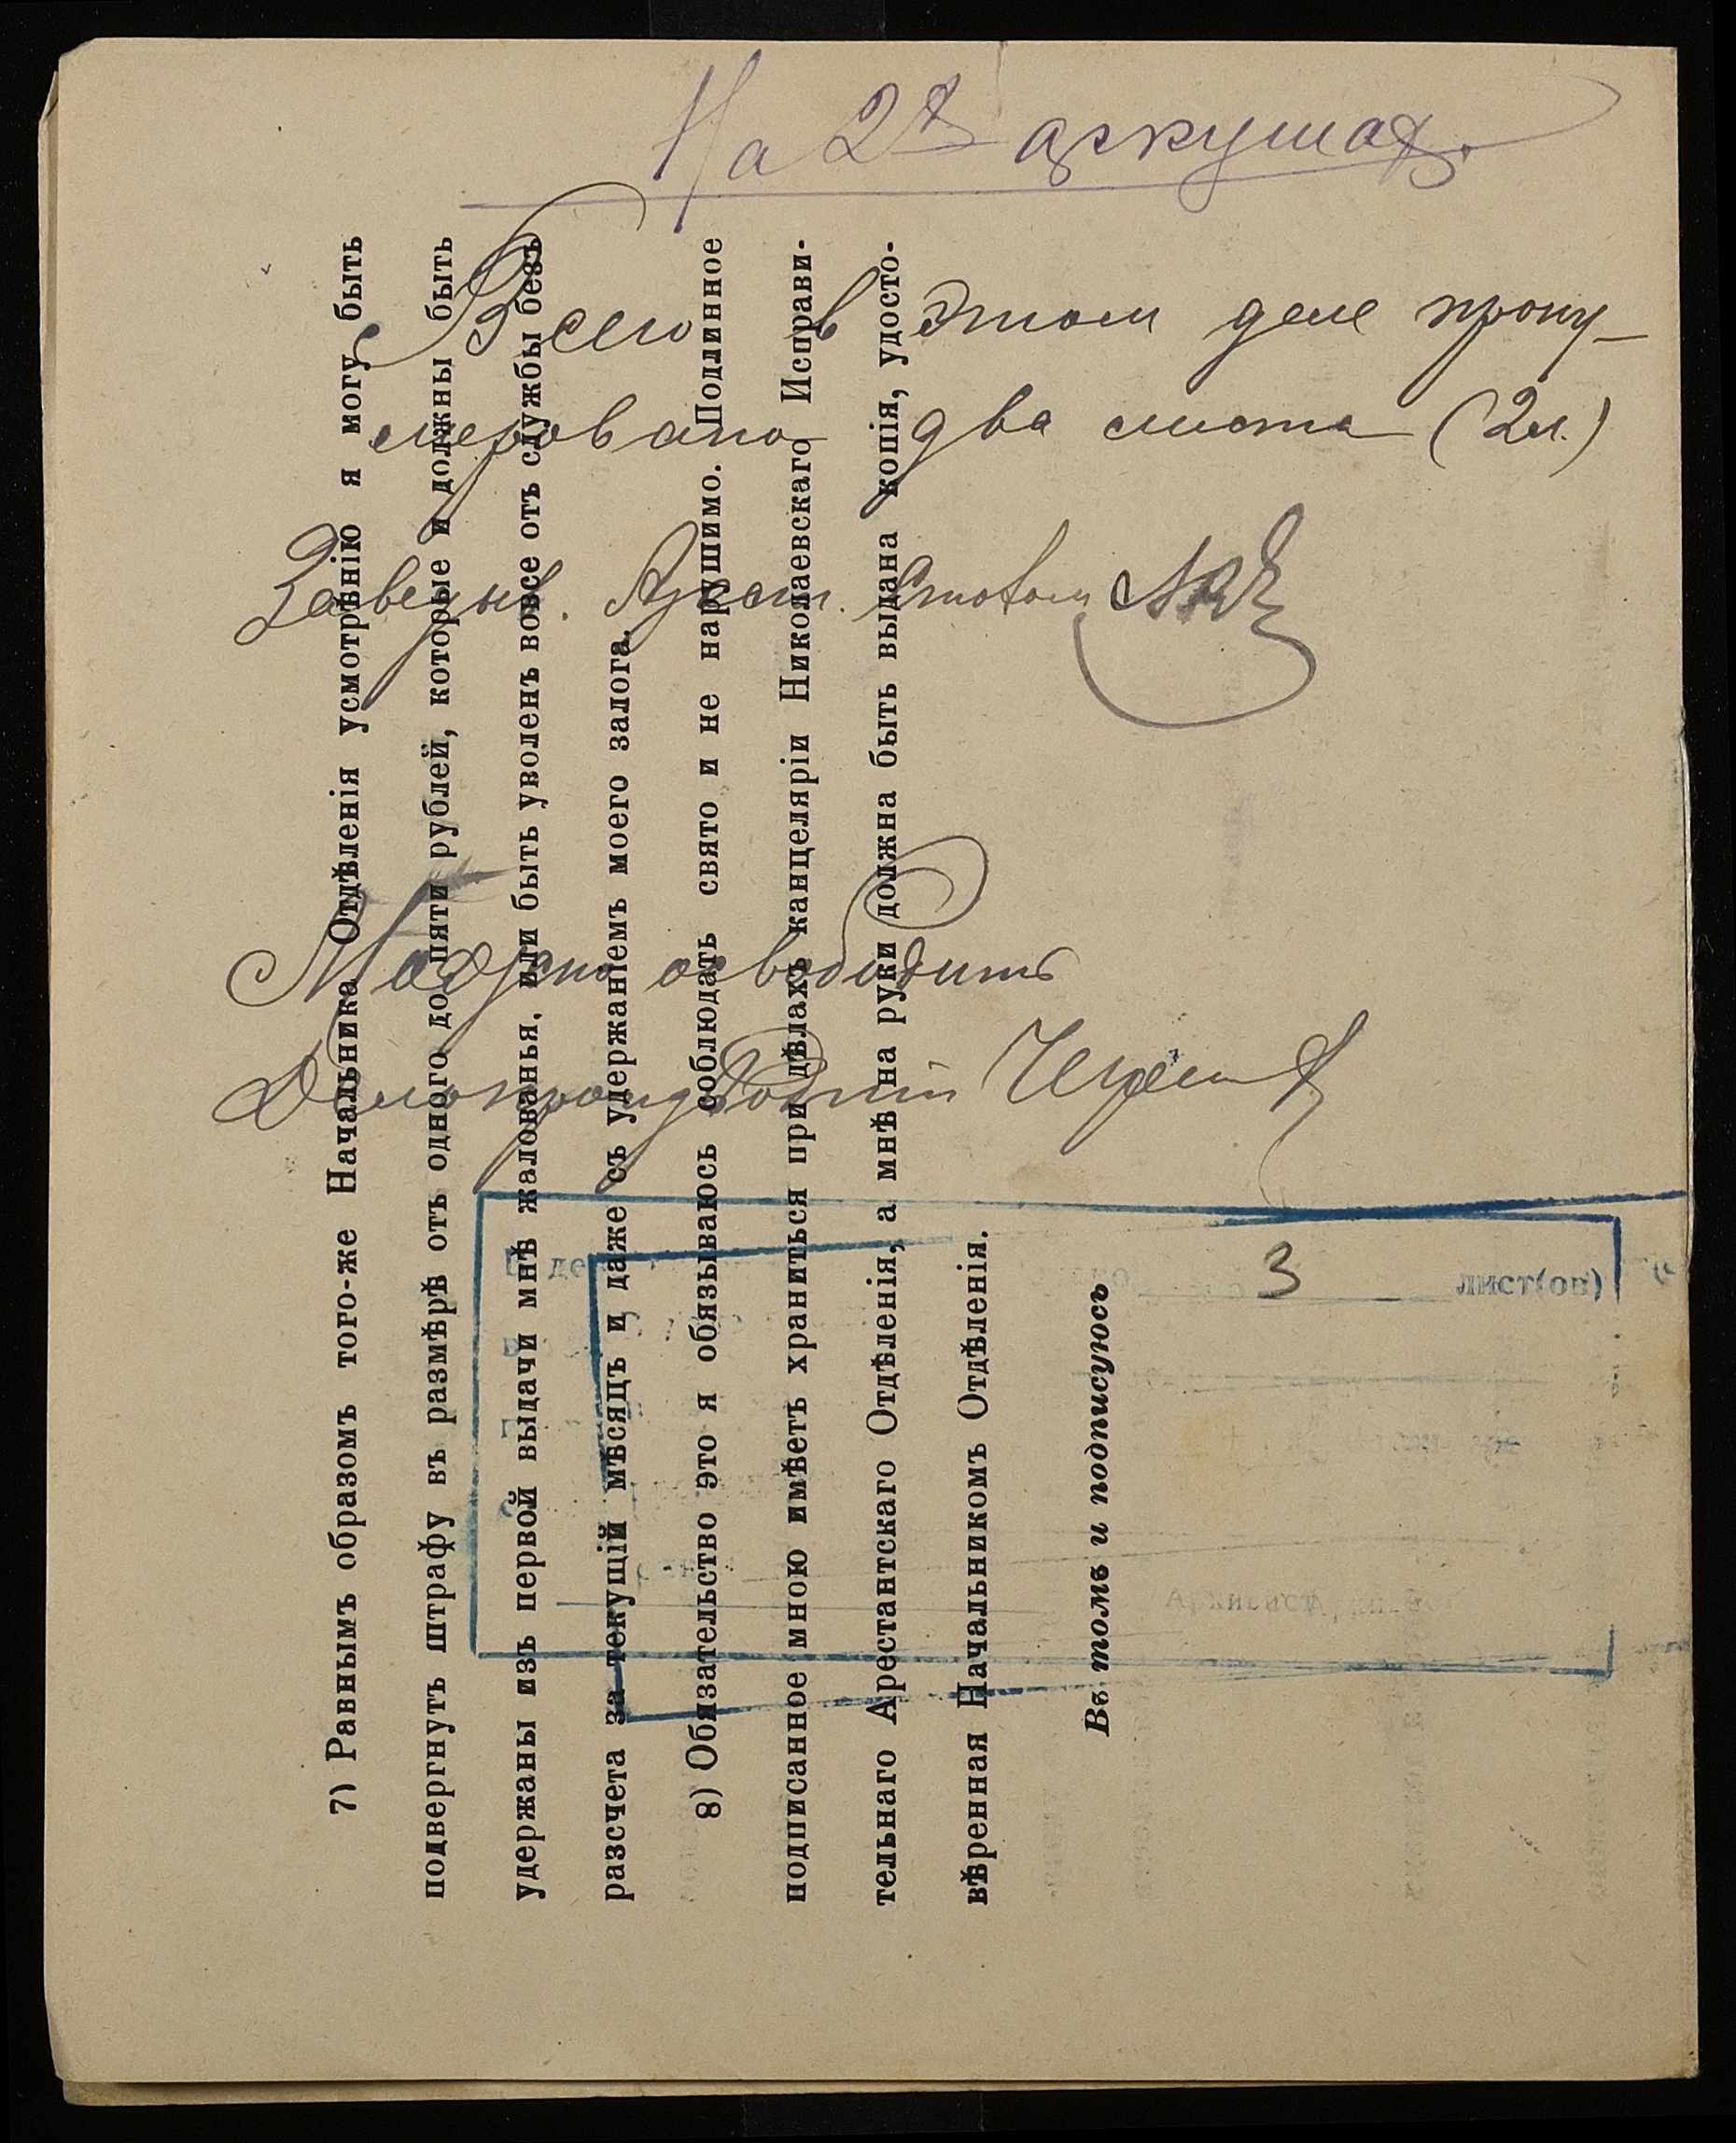 На 2х аркушах.
Всего в этом деле прону-
меровано два листа (2 л.)
Заведыв. Арест. Столом
Можно освободить
Делопроизводит
3 лист(ов)
Архивист
7) Равнымъ образомъ того-же Начальника Отдѣленія усмотрѣнію я могу быть
подвергнутъ штрафу въ размѣрѣ отъ одного до пяти рублей, которые и должны быть
удержаны изъ первой выдачи мнѣ жалованья, или быть уволенъ вовсе отъ службы безъ
разсчета за текущій мѣсяцъ и даже съ удержаніемъ моего залога.
8) Обязательство это я обязываюсь соблюдать свято и не нарушимо. Подлинное
подписанное мною имѣетъ храниться при дѣлахъ канцеляріи Николаевскаго Исправи-
тельнаго Арестантскаго Отдѣленія, а мнѣ на руки должна быть выдана копія, удосто-
вѣренная Начальникомъ Отдѣленія.
Въ томъ и подписуюсь